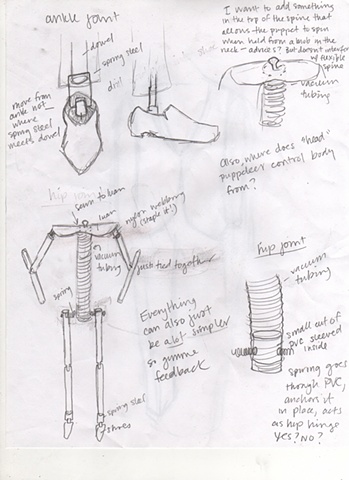 ankle joint
dowel
spring steel
drill
move from
ankle not
where
spring steel
meets dowel
I want to add something
in the top of the spine that
allows the puppet to spin
when held from a hub in the
neck - advice? But doesn't interfere
w/ flexible
spine
vacuum
tubing
Also, where does "head"
puppeteer control body
from?
hip joint
sewn to luan
luan
nylon webbing
(staple it!)
or
vacuum
tubing
just tied together
spring
spring steel
shoes
Everything
can also just
be a lot simpler
so gimme
feedback
hip joint
vacuum
tubing
small cut of
pvc sleeved
inside
spring goes
though PVC,
anchors it
in place, acts
as hip hinge
yes? NO?